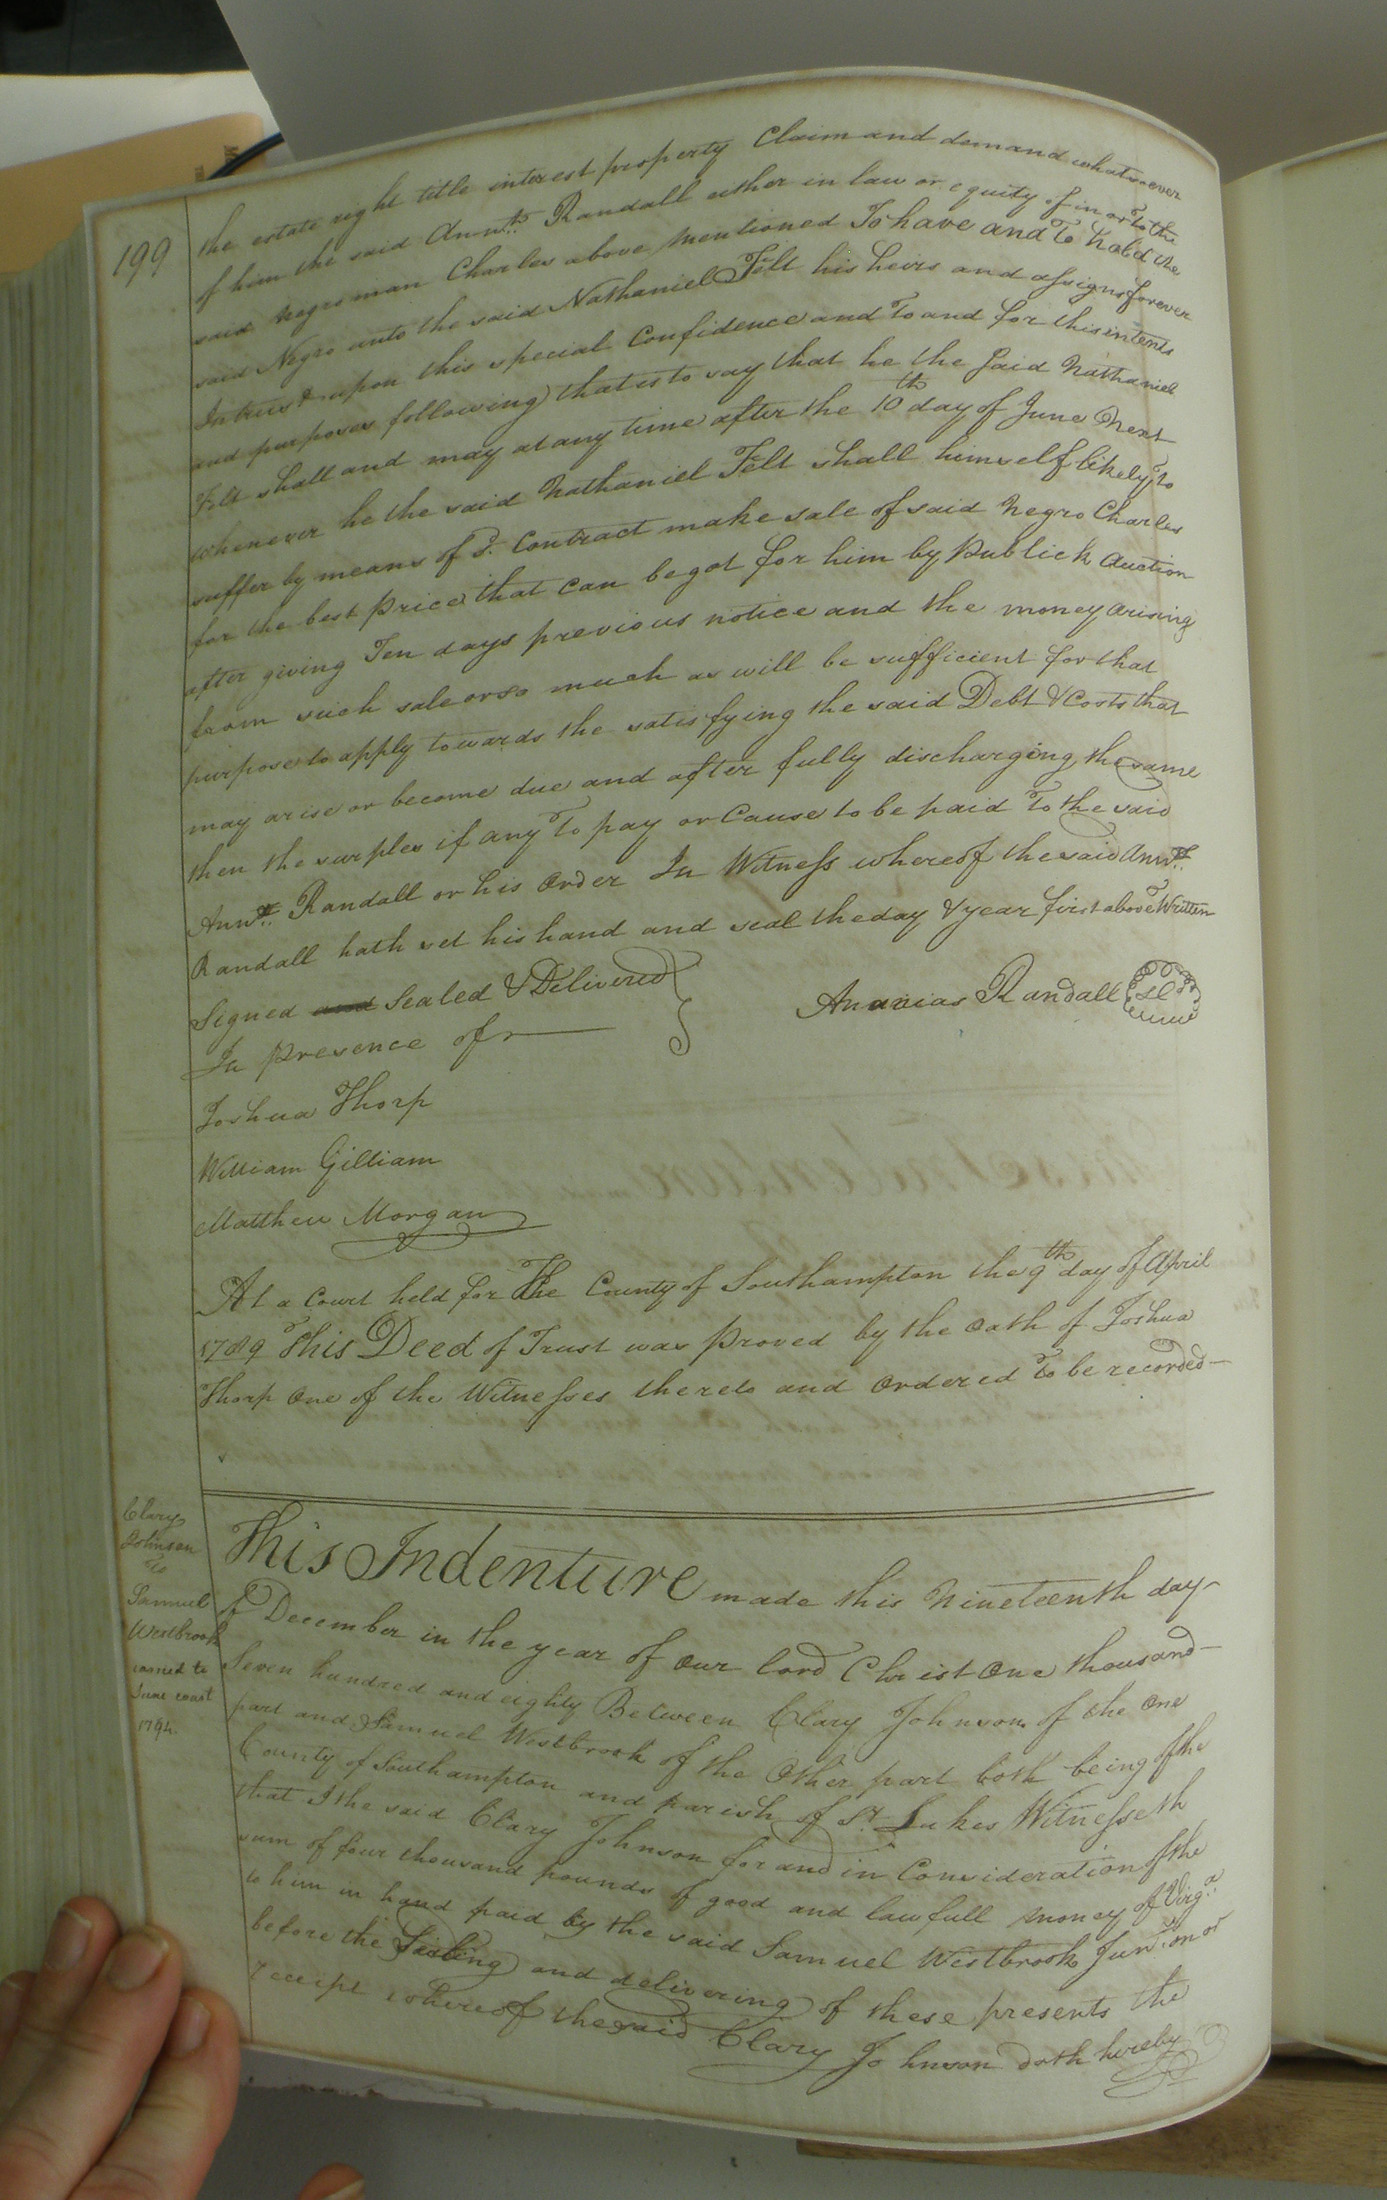 199
the estate right title interest property Claim and demand whatsoever
of him the said Anns. Randall either in law or equity of in or to the
said negro man Charles above mentioned To have and To hold the
said Negro unto the said Nathaniel Felt his heirs and assigns forever
In trust & upon this special Confidence and To and for this intents
and purposes following) that is to say that he the said Nathaniel
Felt shall and may at any time after the 10th day of June Next
whenever he the said Nathaniel Felt shall himself likely to
suffer by means of sd. Contract make sale of said Negro Charles
for the best price that can be got for him by Publick Auction
after giving Ten days previous notice and the money arising
from such sale or so much as will be sufficient for that
purpose to apply towards the satisfying the said Debt & Costs that
may arise or become due and after fully discharging the same
then the surples if any To pay or Cause to be paid To the said
Anns. Randall or his Order In Witness whereof the said Anns.
Randall hath set his hand and seal the day & year first above Written
Signed and Sealed & Delivered
In Presence of
Ananias Randall
Joshua Thorp
William Gilliam
Matthew Morgan
At a Court held for The County of Southampton the 9th day of April
1789 This Deed of Trust was Proved by the Oath of Joshua
Thorp One of the Witnesses thereto and Ordered To be recorded—
Clary
Johnson
to
Samuel
Westbrook
June court
1794.
This Indenture made this Nineteenth day
of December in the year of Our lord Christ One thousand
Seven hundred and eighty Between Clary Johnson of the One
part and Samuel Westbrook of the Other part both being of the
County of Southampton and parish of St. Lukes Witnesseth
that I the said Clary Johnson for and in Consideration of the
sum of four thousand pounds of good and lawfull money of Virga.
to him in hand paid by the said Samuel Westbrook Junr. on or
before the Sealing and delivering of these presents the
receipt whereof the said Clary Johnson doth hereby